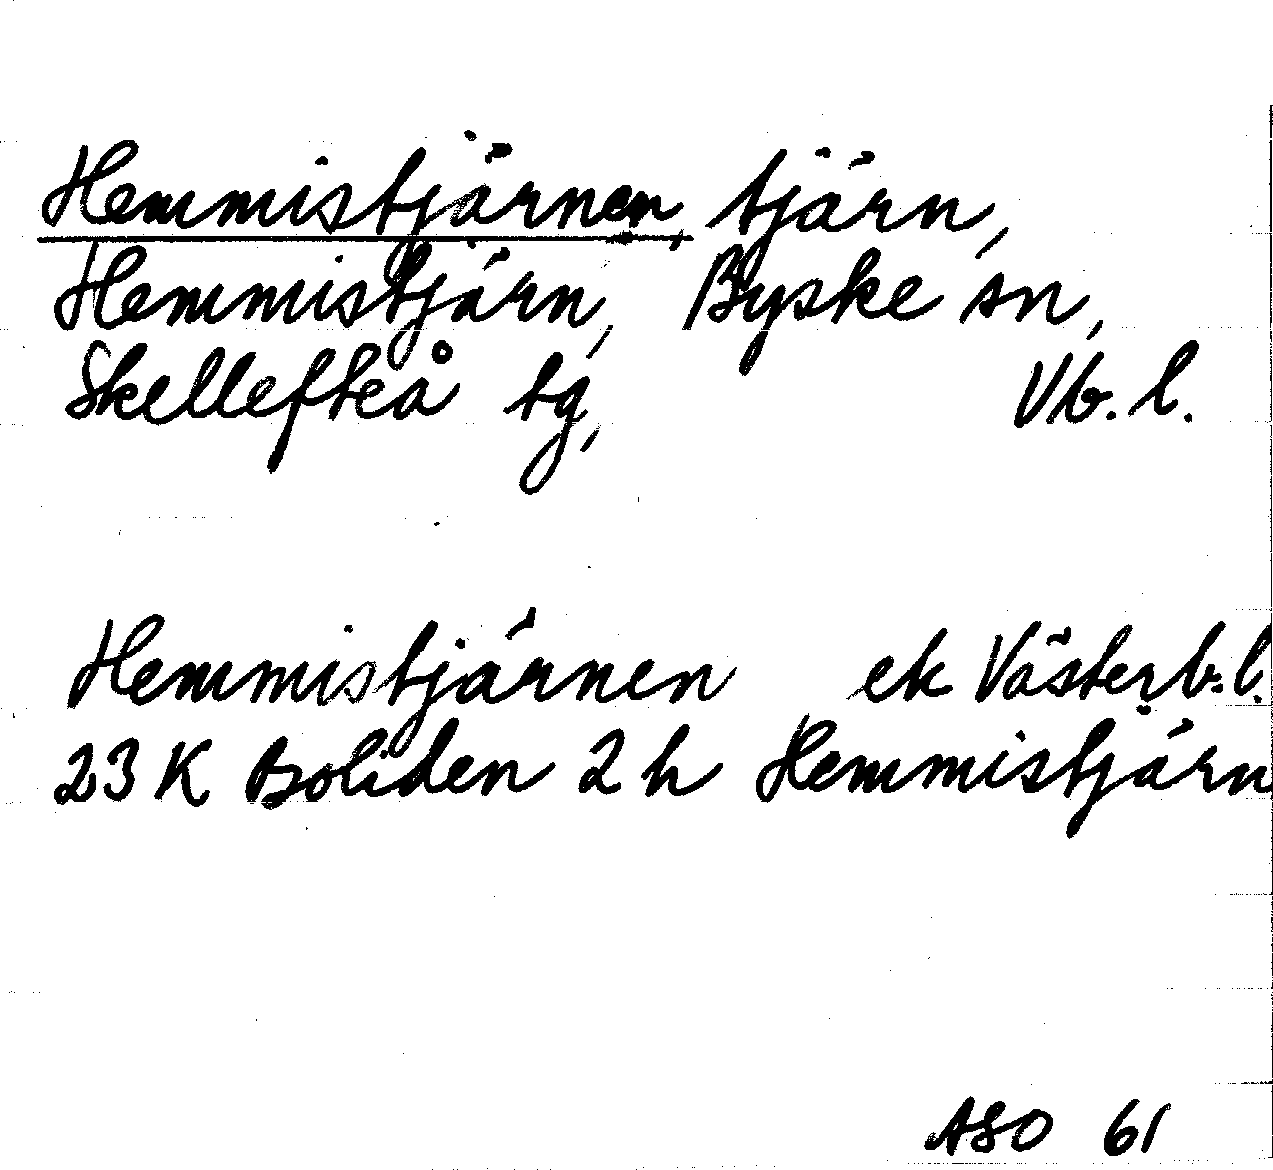 Hemmistjärnen, tjärn,
Hemmistjärn, Byske sn,
Skellefteå tg, Vb. l.
Hemmistjärnen ek Västerb.l.
23 K Boliden 2 h Hemmistjärn
ASO 61